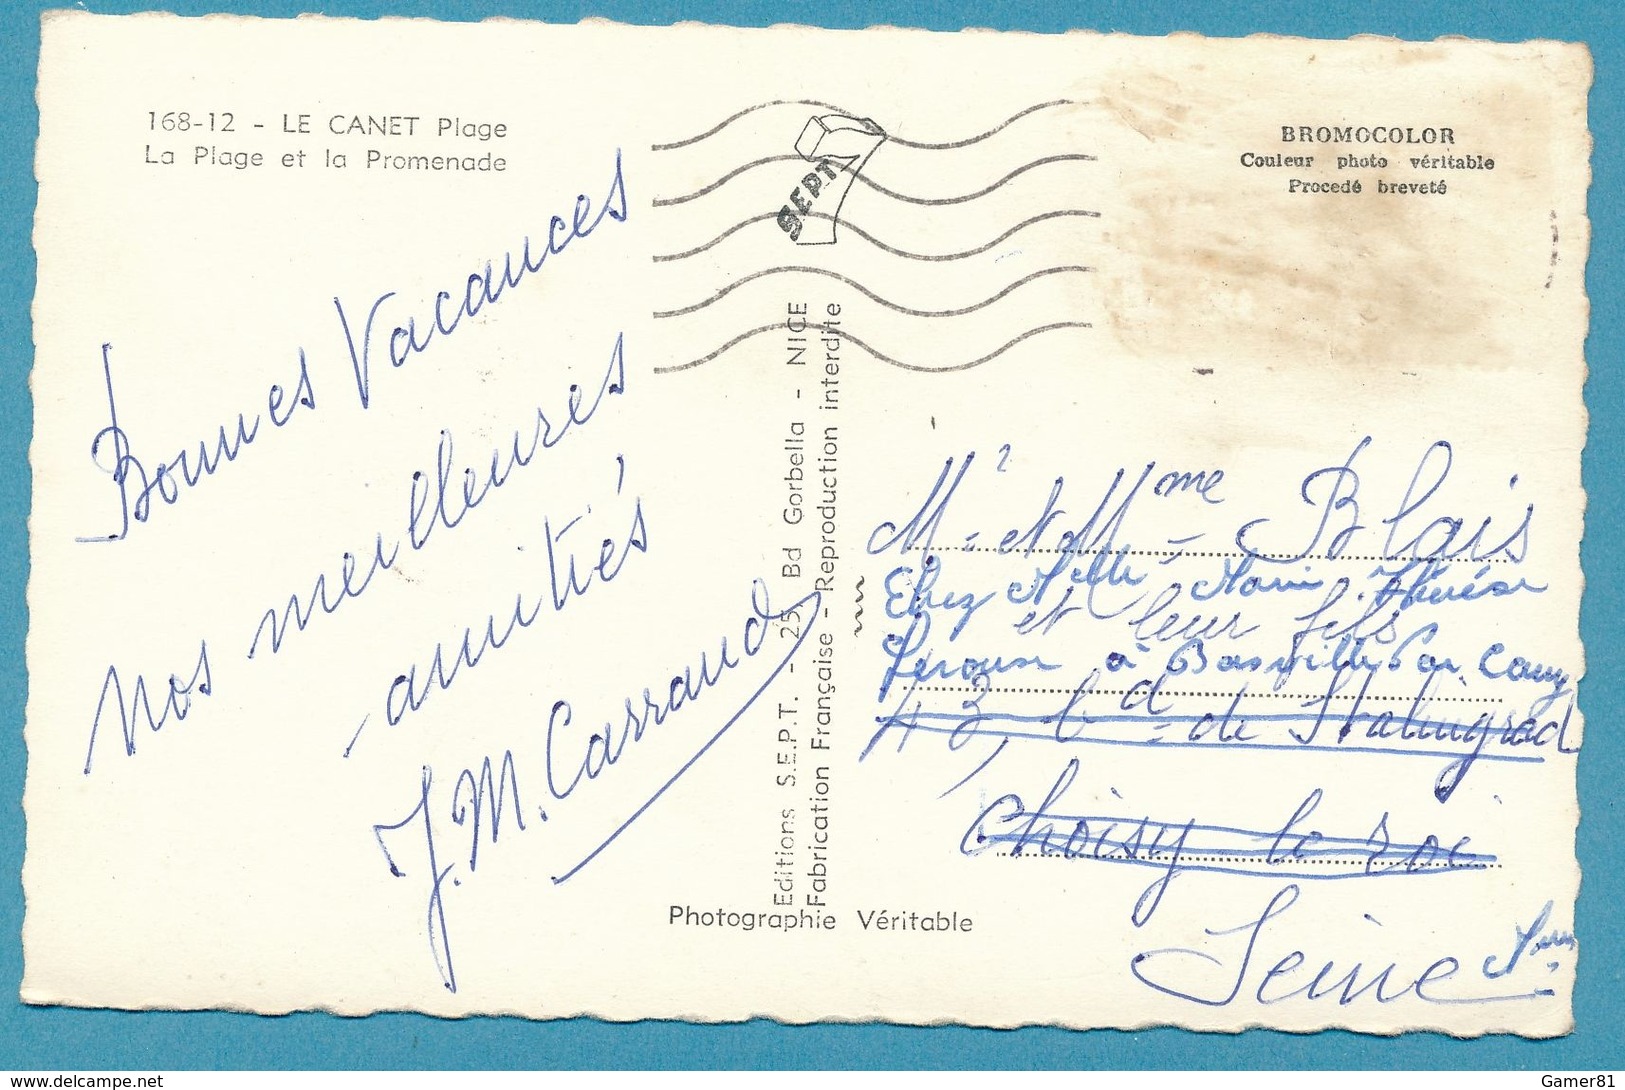 168-12 - LE CANET Plage
La Plage et la Promenade
Bonnes Vacances
nos meilleures
amitiés
J.M. Carraud
SEPT
Editions S.E.P.T. - 25, Bd Gorbella - NICE
Fabrication Française - Reproduction interdite
Photographie Véritable
BROMOCOLOR
Couleur photo véritable
Procedé breveté
Mr et Mme Blais
Chez Melle Marie Thérèse
et leur fils
à Par
43, bd de Stalingrad
Choisy le roi
Seine
delcampe.net
Gamer81